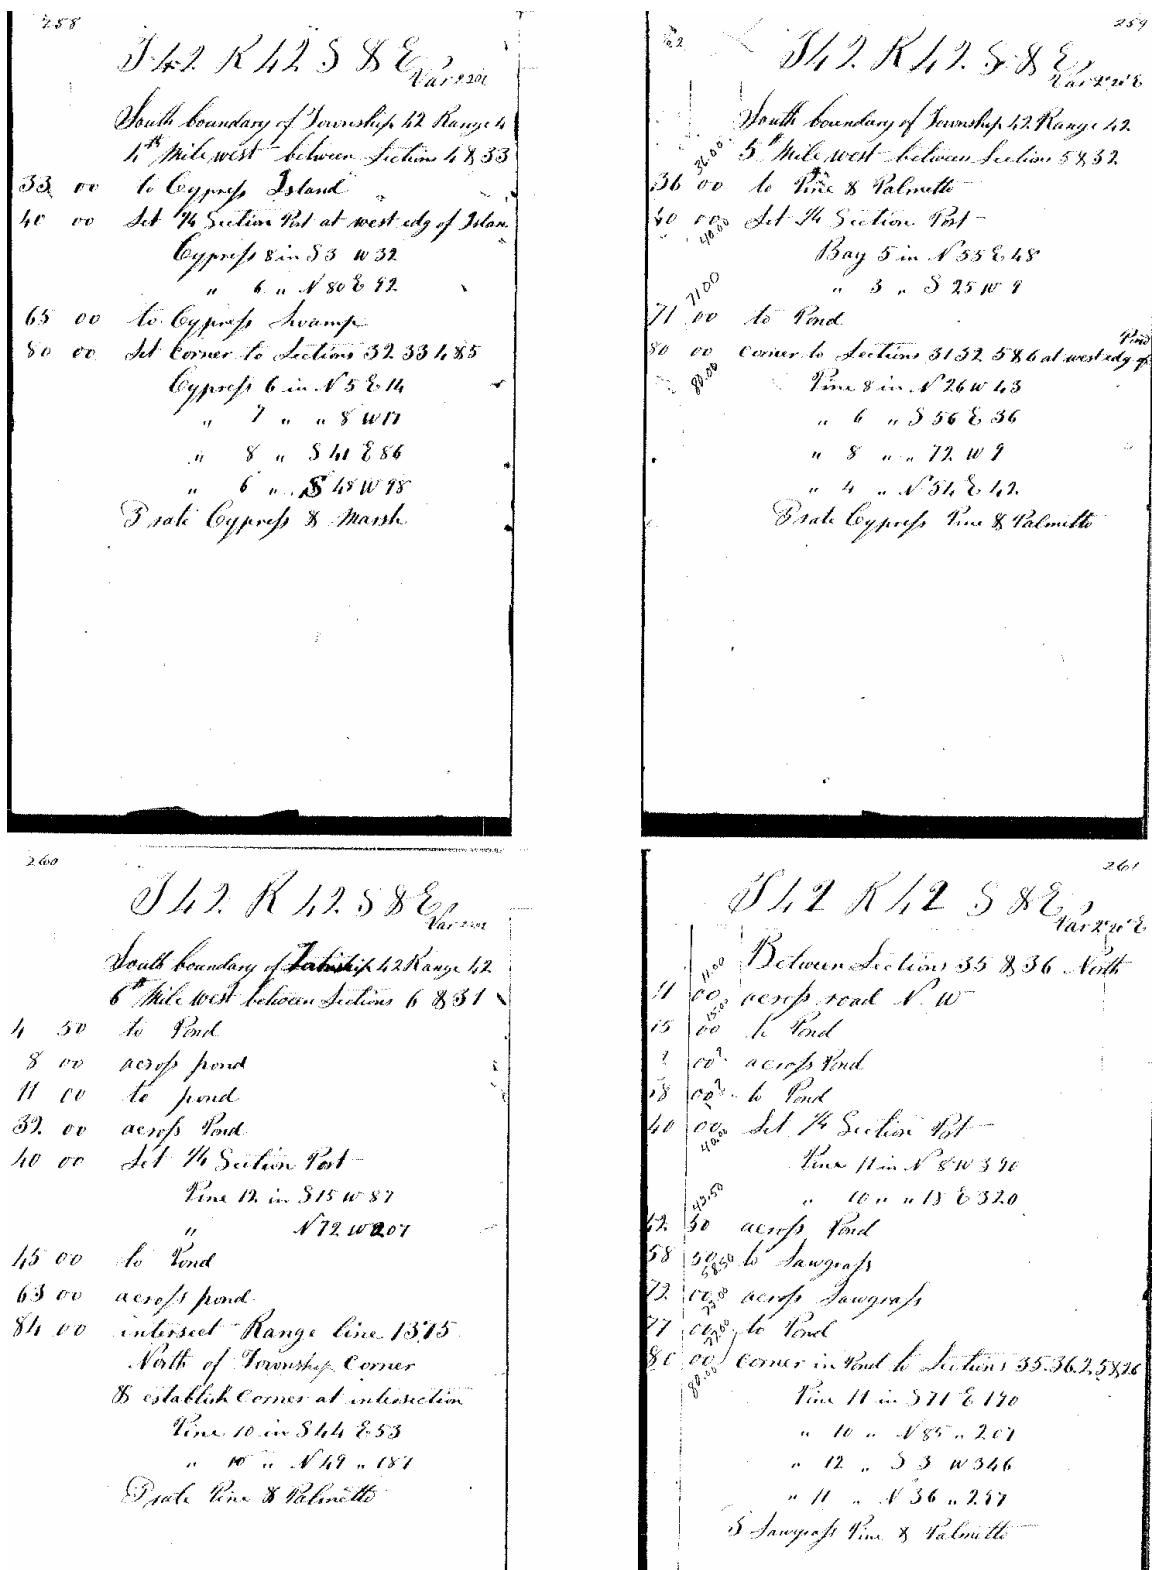 258
T 42 R 42 S & E
Var 2 20 E
South boundary of Township 42 Range 4
4th Mile west between Sections 4 & 33
33 00 to Cypress Island
40 00 Set 1/4 Section Post at west edg of Islan
Cypress 8 in S 3 W 32
" 6 " N 80 E 92
65 00 to Cypress Swamp
80 00 Set Corner to Sections 32 33 4 & 5
Cypress 6 in N 5 E 14
" 7 " " 8 W 17
" 8 " S 41 E 86
" 6 " S 48 W 98
3 rate Cypress & Marsh
259
T 42 R 42 S & E
Var 2° 20' E
South boundary of Township 42 Range 42
5th Mile west between Section 5 & 32
36.00
36 00 to Pine & Palmetto
40 00 Set 1/4 Section Post
40.00
Bay 5 in N 55 E 48
" 3 " S 25 W 9
71 00
71 00 to Pond
80 00 Corner to Sections 31 32 5 & 6 at west edg of Pond
80.00
Pine 8 in N 26 W 43
" 6 " S 56 E 36
" 8 " " 72 W 9
" 4 " N 54 E 42
3 rate Cypress Pine & Palmetto
260
T 42 R 42 S & E
Var 2 20 E
South boundary of Township 42 Range 42
6th Mile west between Sections 6 & 31
4 50 to Pond
8 00 across pond
11 00 to pond
32 00 across Pond
40 00 Set 1/4 Section Post
Pine 12 in S 15 W 87
" N 72 W 207
45 00 to Pond
63 00 across pond
84 00 intersect Range line 13.75
North of Township Corner
& establish Corner at intersection
Pine 10 in S 44 E 53
" 10 " N 49 " 187
3 rate Pine & Palmetto
261
T 42 R 42 S & E
Var 2° 20' E
Between Sections 35 & 36 North
11.00
11 00 across road N. W
15.00
15 00 to Pond
? 00 ? across Pond
18 00 ? to Pond
40 00 Set 1/4 Section Post
40.00
Pine 11 in N 8 W 390
" 10 " " 18 E 320
42.50
42 50 across Pond
58 50 to Sawgrass
58.50
72 00 across Sawgrass
77 00 to Pond
77.00
80 00 Corner in Pond to Sections 35.36.2.5 & 26
80.00
Pine 11 in S 71 E 190
" 10 " N 85 " 207
" 12 " S 3 W 346
" 11 " N 36 " 297
3 Sawgrass Pine & Palmetto